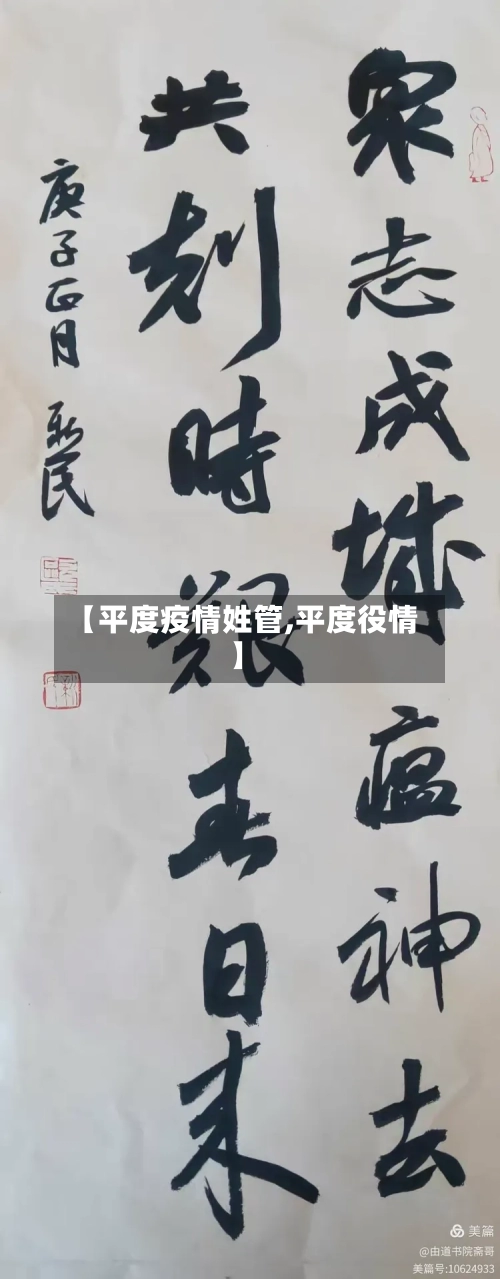 眾志成城瘟神去
共刻時艱春日来
庚子正月
【平度疫情姓管,平度役情
】
美篇
@由道书院斋哥
美篇号:10624933